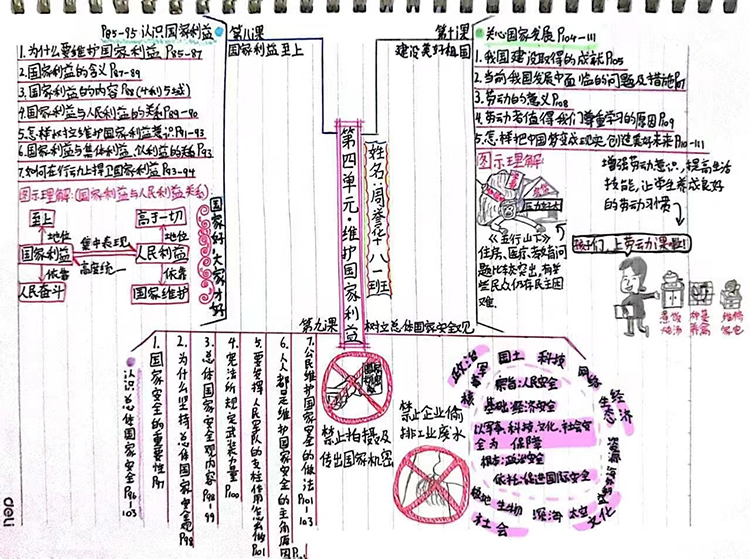 P85-95 认识国家利益
第八课
国家利益至上
1.为什么要维护国家利益 P85-87
2.国家利益的含义P87-89
3.国家利益的内容P88
4.国家利益与人民利益的关系P89-90
5.怎样树立维护国家利益意识P91-93
6.国家利益与集体利益、个人利益的关系P93
7.如何在行动上捍卫国家利益P93-94
图示理解:(国家利益与人民利益关系)
至上
高于一切
地位
地位
国家利益
集中表现
人民利益
高度统一
依靠
依靠
人民奋斗
国家维护
国家好,大家才好
第四单元·维护国家利益
姓名:周誉花 八一班
第十课
建设美好祖国
关心国家发展P104-111
1.我国建设取得的成就P105
2.当前我国发展中面临的问题及措施P107
3.劳动的意义P108
4.劳动者值得我们尊重学习的原因P109
5.怎样把中国梦变成现实,创造美好未来P110-111
图示理解:
增强劳动意识,提高生活
技能,让学生养成良好
的劳动习惯
孩子们,上劳动课啦!
《五行山下》
住房、医疗、教育问
题比较突出,有些
民众仍存在民生困
难
煮饭
炖汤
种菜
养禽
维修
家电
第九课
树立总体国家安全观
认识总体国家安全P96-103
1.国家安全的重要性P97
2.为什么坚持总体国家安全观P98
3.总体国家安全观内容P98-99
4.宪法所规定武装力量P100
5.要发挥人民军队的支柱作用怎么做P101
6.人人都是维护国家安全的主角原因P102
7.公民维护国家安全的做法P101-103
禁止拍摄及
传出国家机密
禁止企业偷
排工业废水
政治
军事
国土
科技
网络
生态
经济
核
宗旨:人民安全
基础:经济安全
以军事、科技、文化、社会安
全为 保障
根本:政治安全
依托:促进国际安全
极地
生物
深海
太空
文化
社会
海外利益
资源
deli